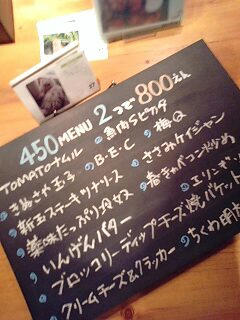 450 MENU 2つで 800えん
TOMATOナムル
魚肉Sピカタ
梅Q
きぬさや玉子
B.E.C
ささみケイジャン
新玉ステーキツナソース
春きゃべコン炒め
薬味たっぷり
エリンギ
いんげんバター
ブロッコリーディップチーズ焼
バケット
クリームチーズ&クラッカー
ちくわ明太